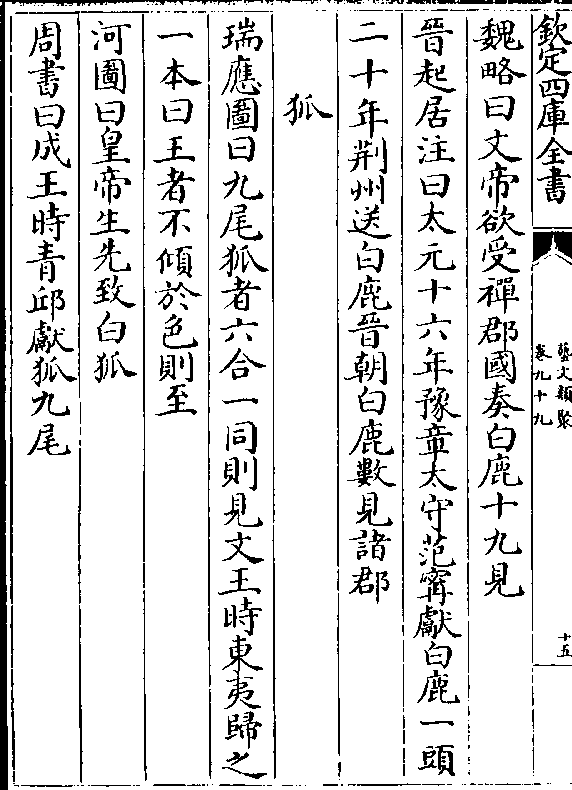 欽定四庫全書
藝文類聚
卷九十九
十五
魏略曰文帝欲受禪郡國奏白鹿十九見
晉起居注曰太元十六年豫章太守范寗獻白鹿一頭
二十年荆州送白鹿晉朝白鹿數見諸郡
狐
瑞應圖曰九尾狐者六合一同則見文王時東夷歸之
一本曰王者不傾於色則至
河圖曰皇帝生先致白狐
周書曰成王時青邱獻狐九尾